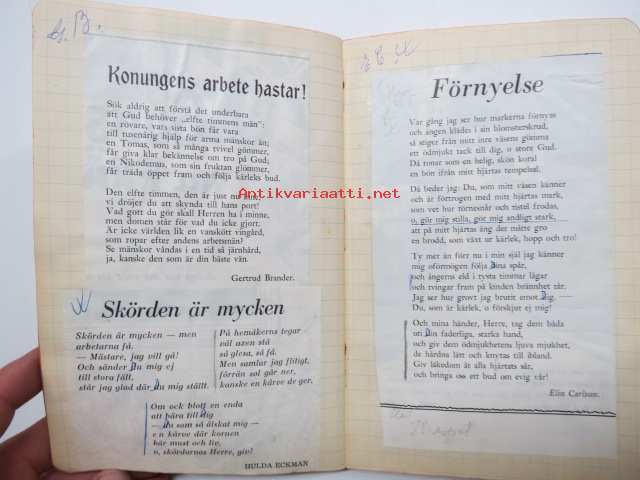 G. B.
Konungens arbete hastar!
Sök aldrig att förstå det underbara
att Gud behöver „elfte timmens män":
en rövare, vars sista bön får vara
till tusenårig hjälp för arma mänskor än;
en Tomas, som så många tvivel gömmer,
får giva klar bekännelse om tro på Gud;
en Nikodemus, som sin fruktan glömmer,
får träda öppet fram och följa kärleks bud.
Den elfte timmen, den är just nu inne,
vi dröjer att du skynda till hans port!
Vad gott du gör skall Herren ha i minne,
men domen står för vad du icke gjort.
Är icke världen lik en vanskött vingård,
som ropar efter andens arbetsmän?
Se mänskor våndas i en tid så järnhård,
ja, kanske den som är din bäste vän.
Gertrud Brander.
Skörden är mycken
Skörden är mycken — men
arbetarna få.
— Mästare, jag vill gå!
Och sänder Du mig ej
till stora fält,
står jag glad där Du mig ställt.
På hemåkerns tegar
väl axen stå
så glesa, så få.
Men samlar jag flitigt,
förrän sol går ner,
kanske en kärve de ger.
Om ock blott en enda
att bära till Dig
— Du som så älskat mig —
en kärve där kornen
bär must och liv,
o, skördarnas Herre, giv!
HULDA ECKMAN
Förnyelse
Var gång jag ser hur markerna förnyas
och ängen klädes i sin blomsterskrud,
så stiger från mitt inre västens gömma
ett ödmjukt tack till dig, o store Gud.
Då tonar som en helig, skön koral
en bön ifrån mitt hjärtas tempelsal.
Då beder jag: Du, som mitt väsen känner
och är förtrogen med mitt hjärtas mark,
som vet hur törnesnår och tistel frodas,
o, gör mig stilla, gör mig andligt stark,
att på mitt hjärtas äng det måtte gro
en brodd, som växt ur kärlek, hopp och tro!
Ty mer än förr nu i min själ jag känner
mig oförmögen följa Dina spår,
och ångerns eld i tysta timmar lågar
och tvingar fram på kinden brännhet tår.
Jag ser hur grovt jag brutit emot Dig. —
Du, som är kärlek, o förskjut ej mig!
Och mina händer, Herre, tag dem båda
uti Din faderliga, starka hand,
och giv dem ödmjukhetens ljuva mjukhet,
de hårdna lätt och knytas till ibland.
Giv läkedom åt alla hjärtats sår,
och bringa oss ett bud om evig vår!
Elin Carlson.
Antikvariaatti.net